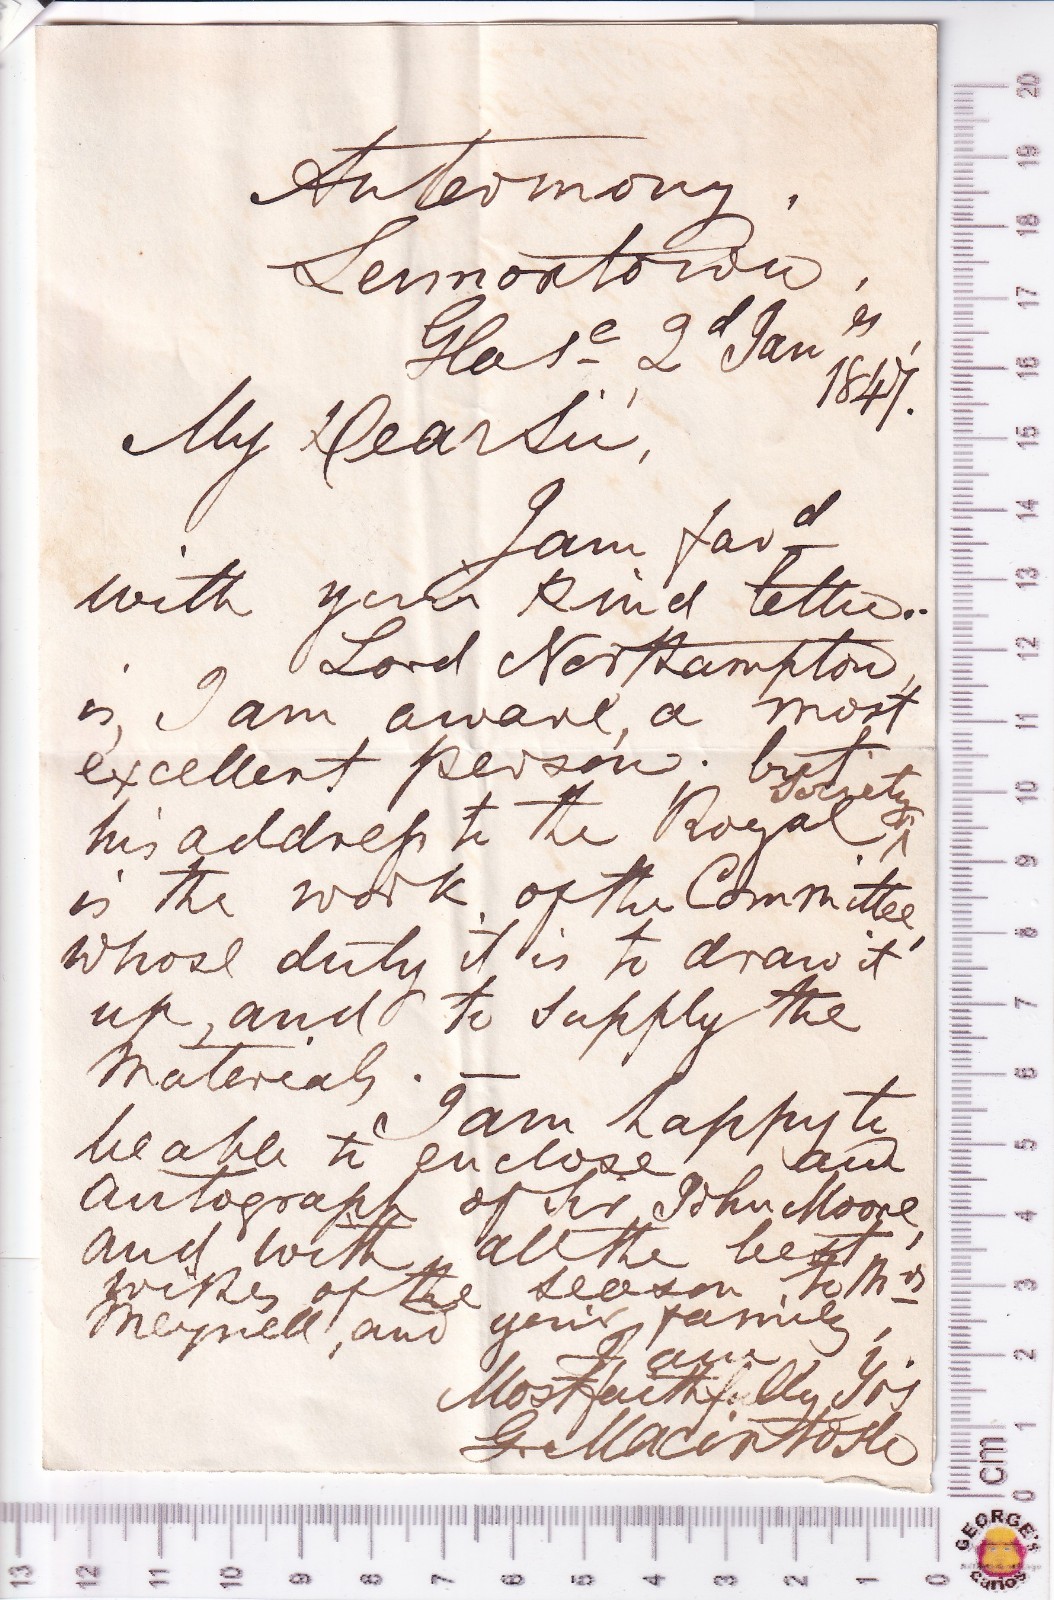 Antermony,
Lennoxtown,
Glasc 2d Jany,
1847.
My Dear Sir,
I am favd
with your kind letter..
Lord Northampton,
is, I am aware, a most
excellent person. but
Society
his address to the Royal ^
is the work of the Committee,
whose duty it is to draw it
up, and to supply the
materials. —
I am happy to
be able to enclose an
autograph of Sir John Moore,
and with all the best
wishes of the season to Mrs
Meynell, and your family,
I am,
Most faithfully Yrs
G. Macintosh
20
19
18
17
16
15
14
13
12
11
10
9
8
7
6
5
4
3
2
1
0
cm
13 12 11 10 9 8 7 6 5 4 3 2 1 0
GEORGE'S
carlos